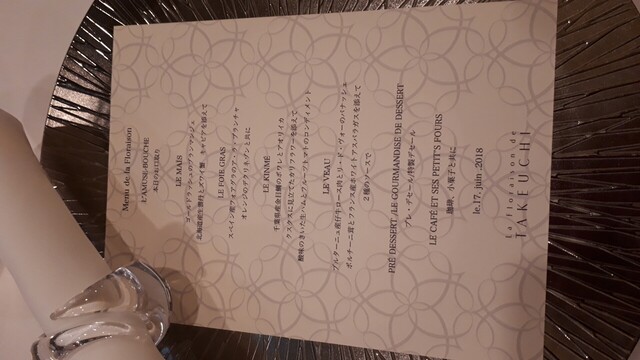 Menu de la Floraison
L'AMUSE-BOUCHE
本日のお口取り
LE MAÏS
ゴールドラッシュのブランマンジェ
北海道産生雲丹とズワイ蟹、キャビアを添えて
LE FOIE GRAS
スペイン産フォアグラのア・ラ・プランチャ
オレンジのデクリネゾンと共に
LE KINMÉ
千葉県産金目鯛のポワレとアメリカ
クスクスに見立てたカリフラワーを添えて
酸味のきいた生ハムとフルーツトマトのコンディメント
LE VEAU
ブルターニュ産仔牛ロース肉とリ・ド・ヴォーのパナッシェ
ポルチーニ茸とフランス産ホワイトアスパラガスを添えて
2種のソースで
PRÉ DESSERT /LE GOURMANDISE DE DESSERT
プレ・デセール/特製デセール
LE CAFÉ ET SES PETIT'S FOURS
珈琲、小菓子と共に
le,17. juin ,2018
La floraison de
TAKEUCHI